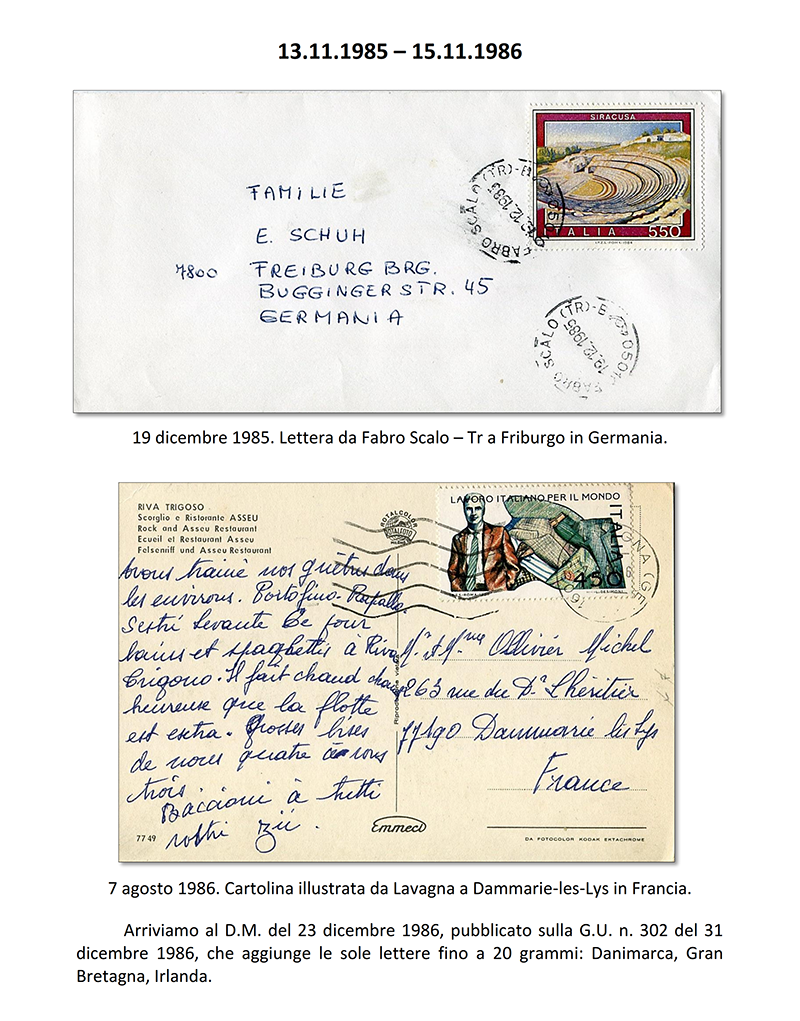 13.11.1985 – 15.11.1986
SIRACUSA
ITALIA 550
FABRO SCALO (TR)
19.12.1985
FAMILIE
E. SCHUH
7800 FREIBURG BRG.
BUGGINGERSTR. 45
GERMANIA
FABRO SCALO (TR)
19.12.1985
19 dicembre 1985. Lettera da Fabro Scalo – Tr a Friburgo in Germania.
RIVA TRIGOSO
Scorglio e Ristorante ASSEU
Rock and Asseu Restaurant
Ecueil et Restaurant Asseu
Felseniff und Asseu Restaurant
ROTALCOLOR
ROTALFOTO
LAVORO ITALIANO PER IL MONDO
ITALIA
450
Avons trainé nos guêtres dans
les environs. Portofino. Rapallo.
Sestri Levante Ce jour
bains et spaghettis à Riva
Trigoso. Il fait chaud
heureuse que la flotte
est extra. Grosses bises
de nous quatre à vous
trois.
Baccioni à tutti
zii.
Mr et Mme Ollivier Michel
263 rue du Dr Lhéritier
77190 Dammarie les Lys
France
7749
Emmeci
DA FOTOCOLOR KODAK EKTACHROME
7 agosto 1986. Cartolina illustrata da Lavagna a Dammarie-les-Lys in Francia.
Arriviamo al D.M. del 23 dicembre 1986, pubblicato sulla G.U. n. 302 del 31
dicembre 1986, che aggiunge le sole lettere fino a 20 grammi: Danimarca, Gran
Bretagna, Irlanda.